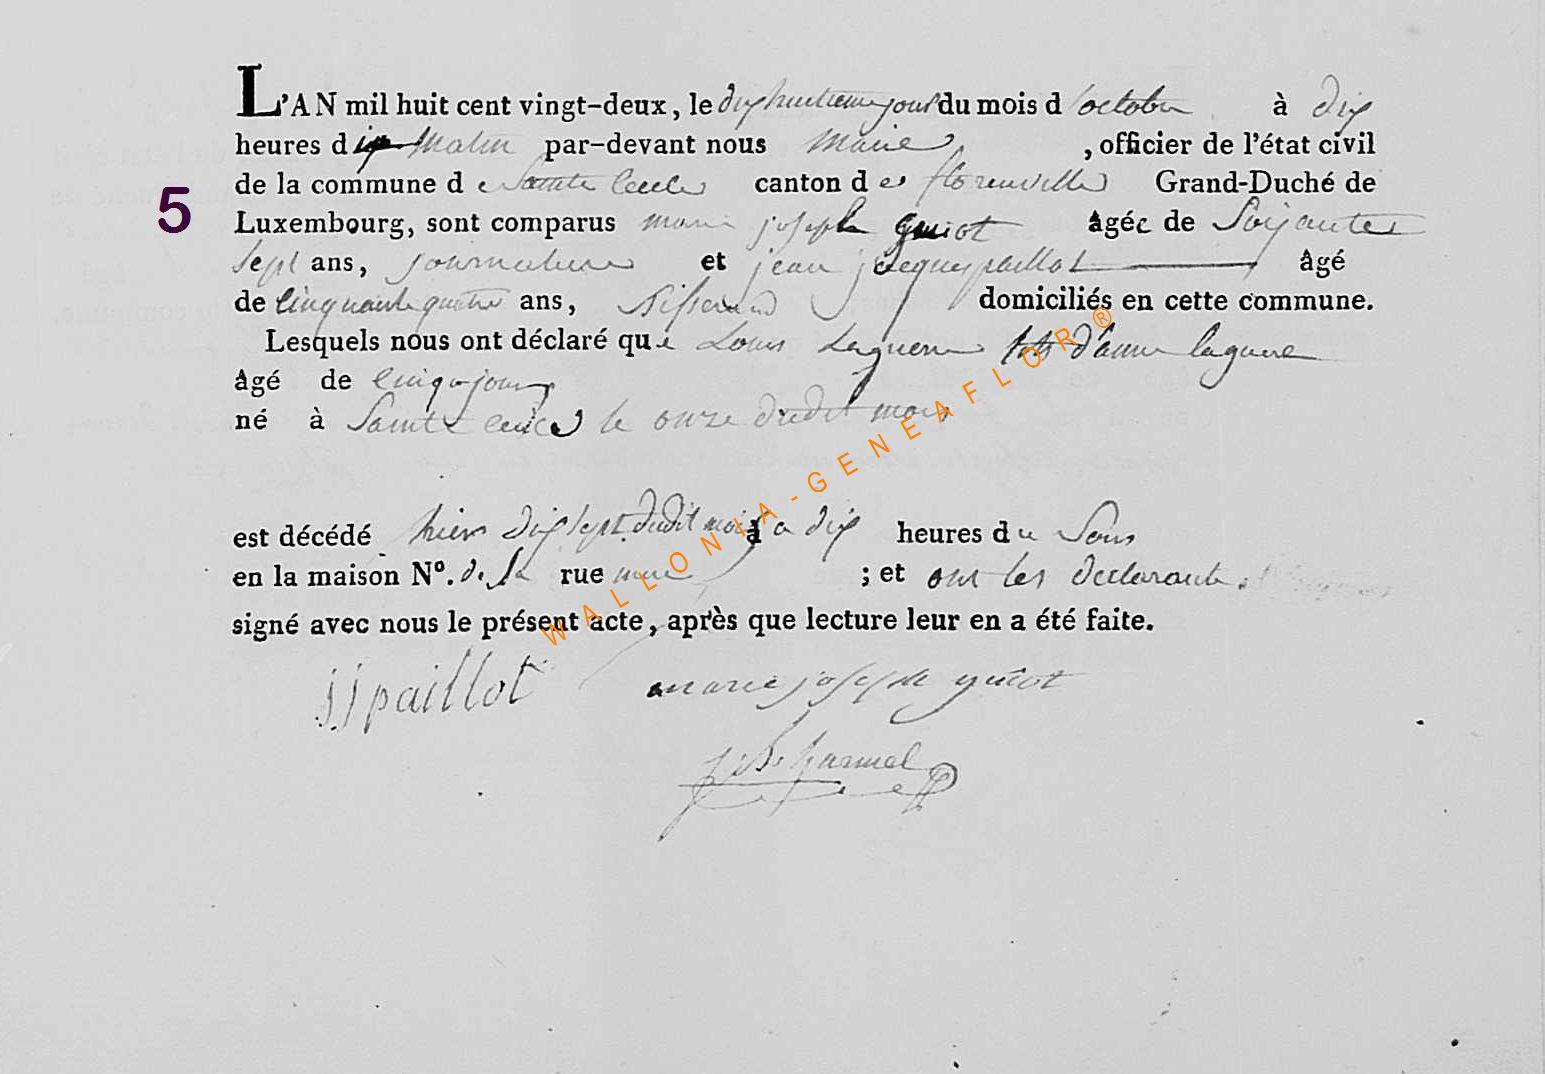 L'AN mil huit cent vingt-deux, le dixhuitieme jour du mois d'octobre à dix
heures du matin par-devant nous Maire, officier de l'état civil
de la commune de Sainte Cecile canton de florenville Grand-Duché de
5
Luxembourg, sont comparus marie joseph guiot âgée de Soixante
sept ans, journaliere et jean jacque paillot âgé
de cinquante quatre ans, tisserand domiciliés en cette commune.
Lesquels nous ont déclaré que Louis Laguerre fils d'anne laguerre
âgé de cinq jours
né à Sainte Cecile le onze dudit mois
est décédé hier dix sept dudit mois à dix heures du Soir
en la maison Nº. de la rue ; et ont les declarants
signé avec nous le présent acte, après que lecture leur en a été faite.
jjpaillot marie joseph guiot
WALLONIA-GENEAFLOR®